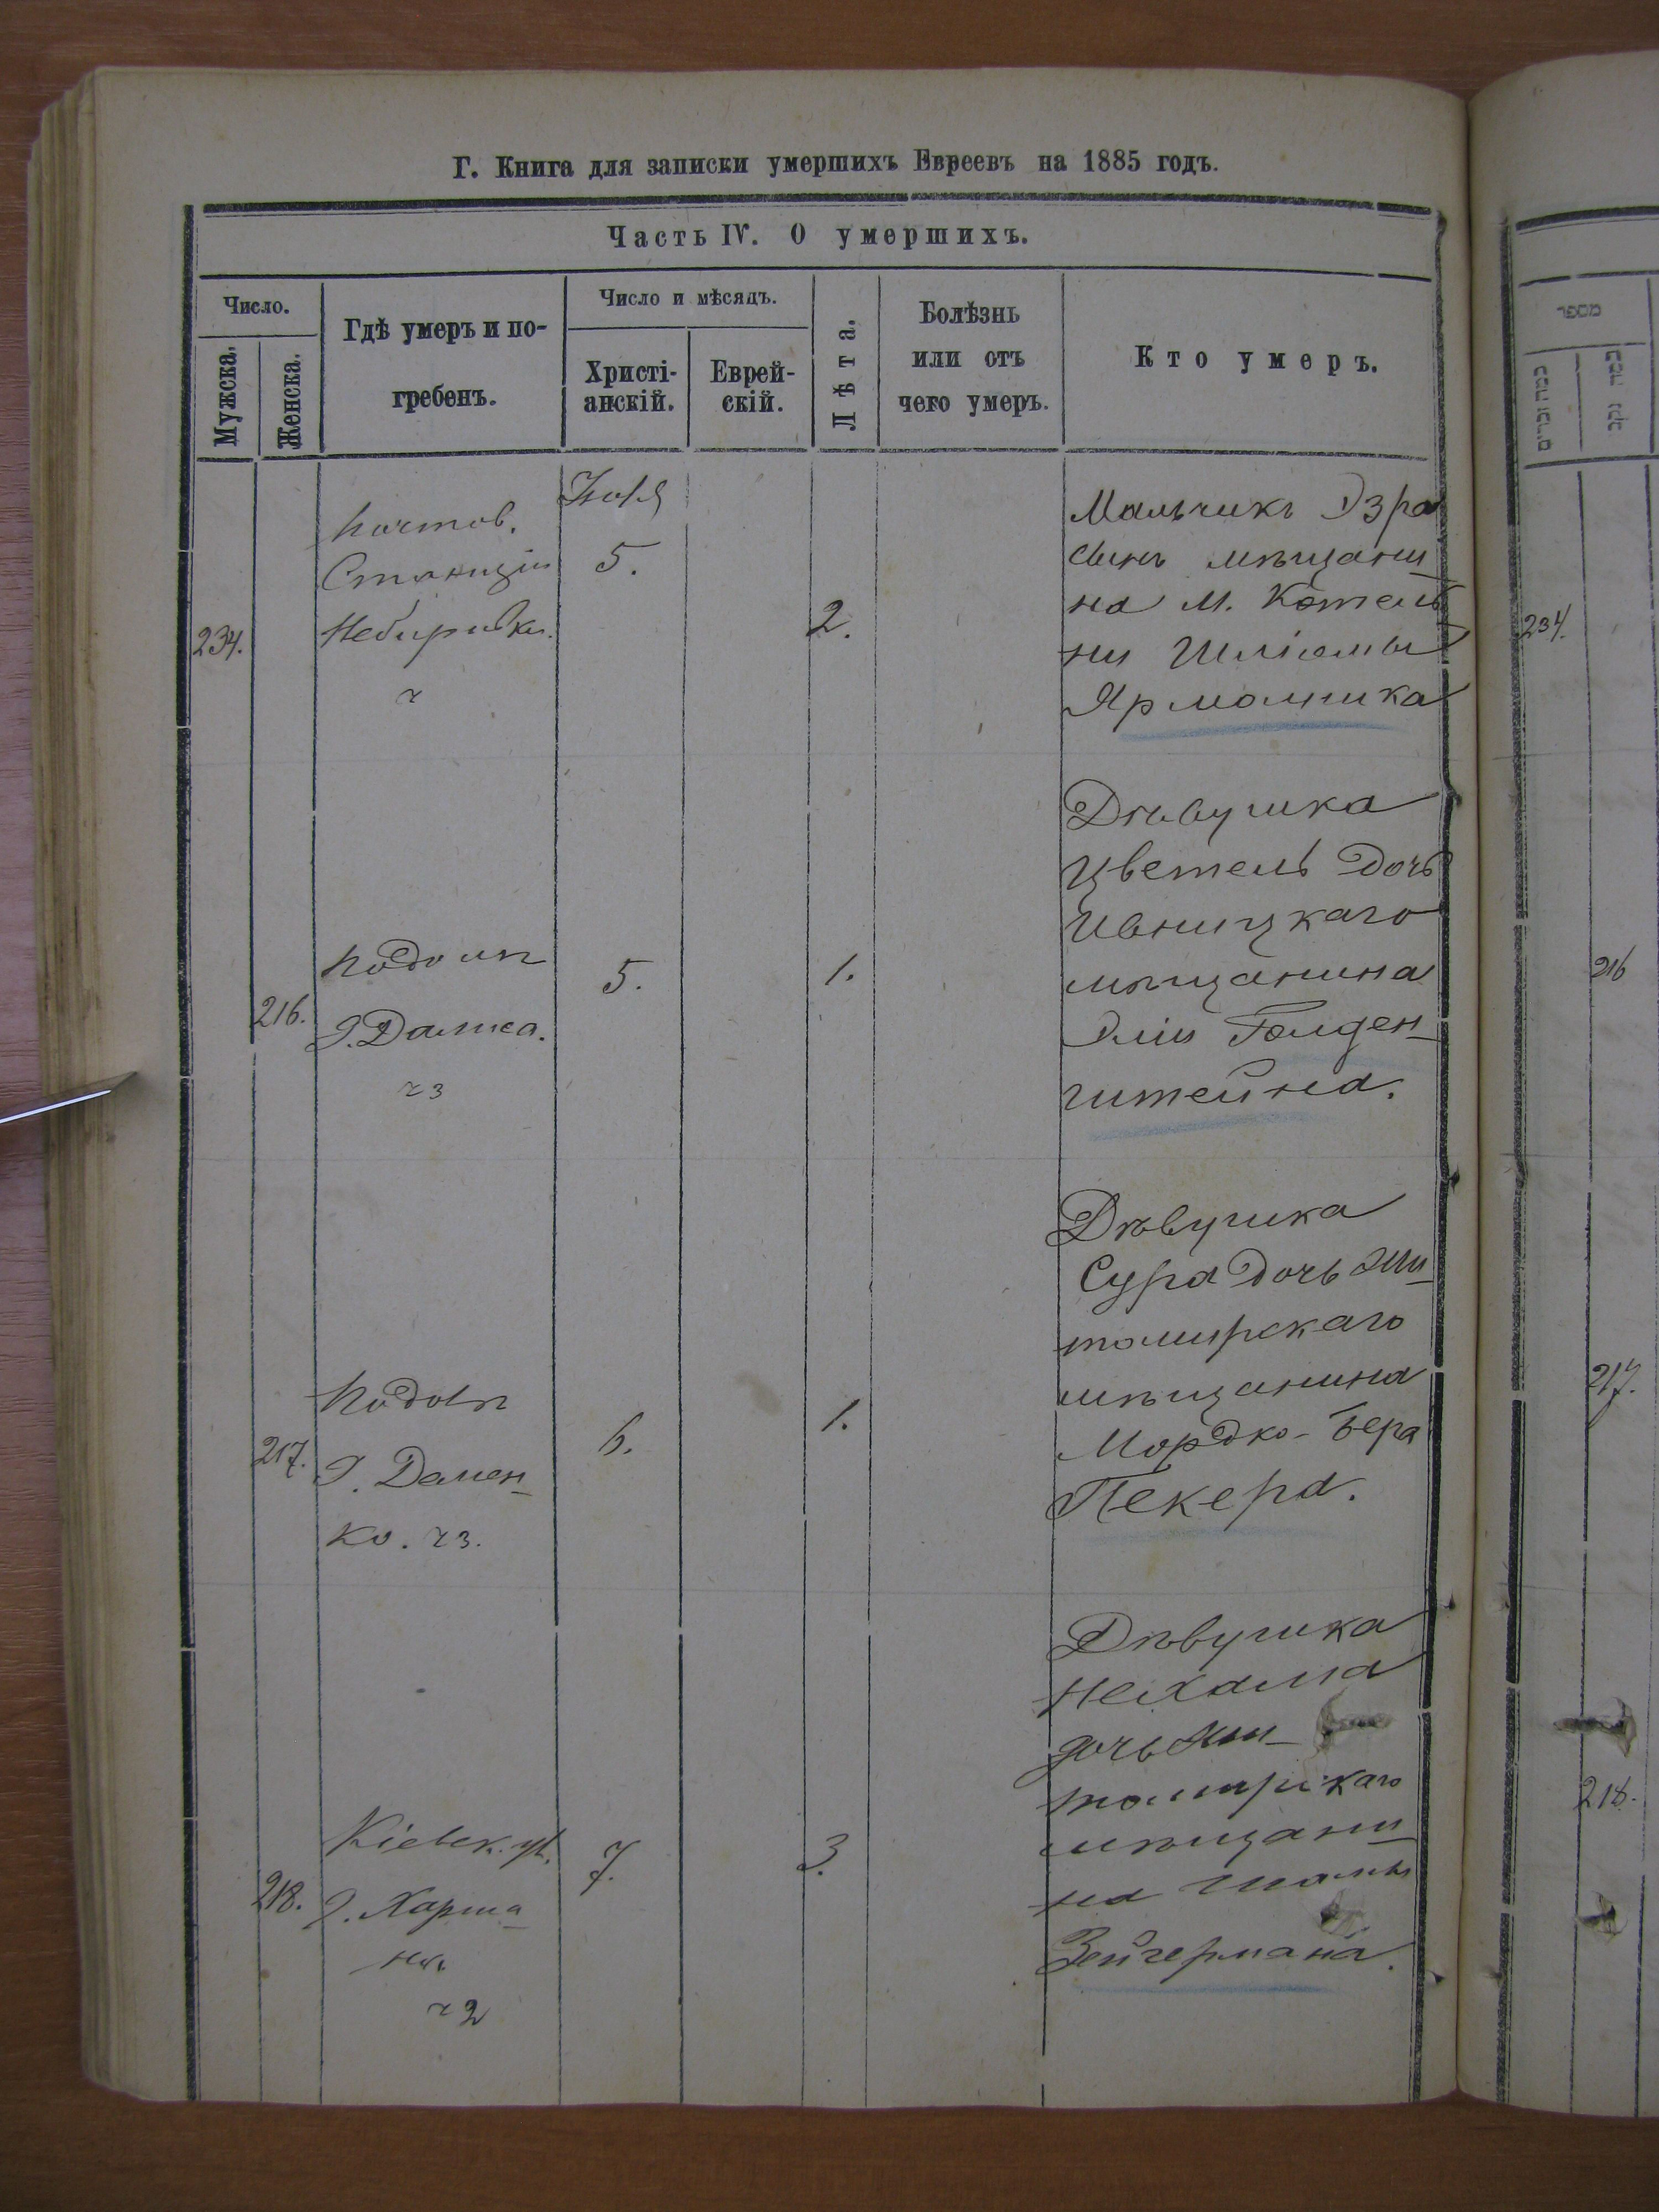 Г. Книга для записки умершихъ Евреевъ на 1885 годъ.
Часть IV. О умершихъ.
Число.
Мужска.
Женска.
Гдѣ умеръ и по-
гребенъ.
Число и мѣсяцъ.
Христі-
анскій.
Еврей-
скій.
Лѣта.
Болѣзнь
или отъ
чего умеръ.
Кто умеръ.
234.
почтов.
Станціи
5.
2.
Мальчикъ Эзра
сынъ мѣщани
на м. Котель
ни Шліомы
Ярмолника
216.
Подолъ
ч3
5.
1.
Дѣвушка
Цветель дочь
Ивницкаго
мѣщанина
Эліи Голден-
штейна.
217.
Подолъ
Д. Демен-
ко. ч3.
6.
1.
Дѣвушка
Сура дочь Жи-
томирскаго
мѣщанина
Мордко-Бера
Пекера.
218.
Кіевск. ул.
ч2
7.
3.
Дѣвушка
Нехама
дочь Жи-
томирскаго
мѣщани
на
Зейгермана.
234.
216
217.
218.